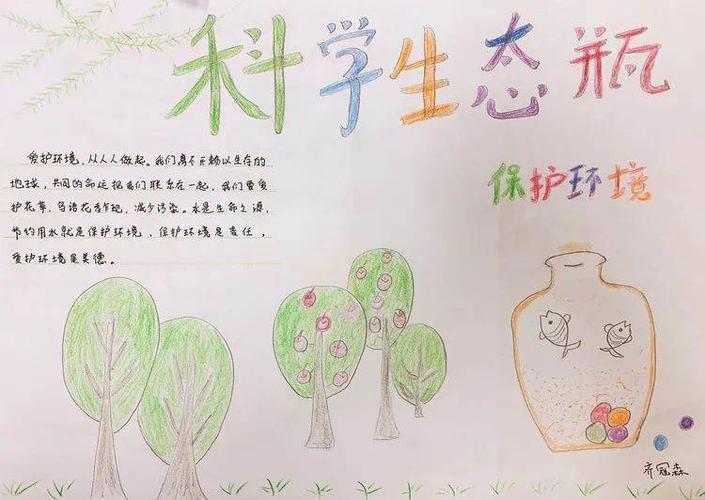 科学生态瓶
爱护环境，从人人做起。我们离不开赖以生存的
地球，共同的命运把我们联系在一起，我们要爱
护花草，鸟语花香作地，减少污染。水是生命之源，
节约用水就是保护环境，保护环境是责任，
爱护环境是美德。
保护环境
齐冠森